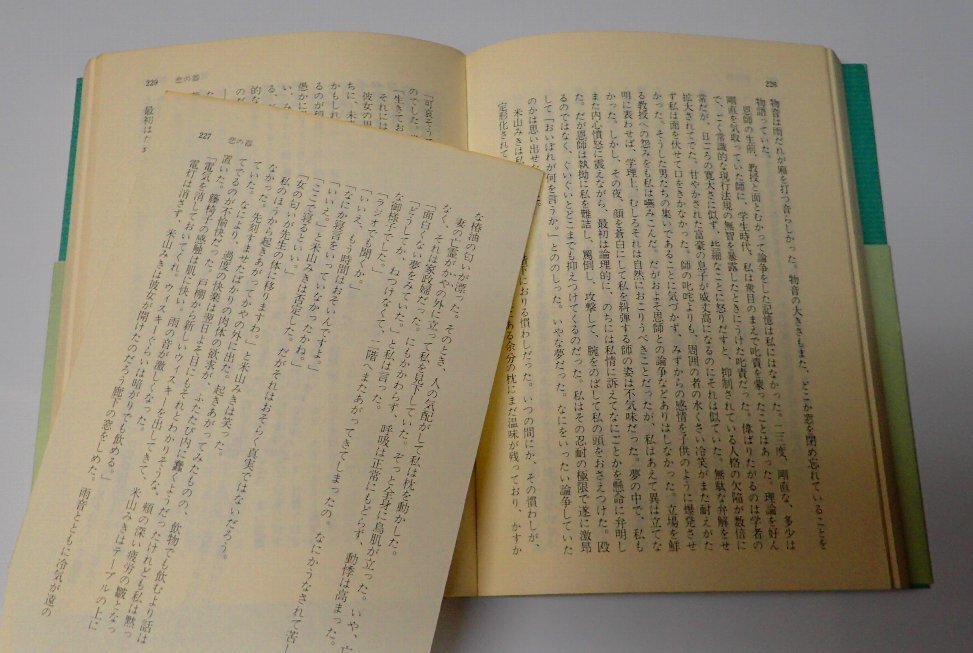 226
物音は雨だれが廂を打つ音らしかった。物音の大きさもまた、どこか窓を閉め忘れていることを
物語っていた。
恩師の生前、教授と面とむかって論争をした記憶は私にはなかった。一、二三度、剛直な、多少は
剛直を気取っていた師に、学生時代、私は衆目のまえで叱責を蒙ったことはあった。理論を好ん
で、ごく常識的な現行法規の無智を暴露したときにうけた叱責だった。偉ばりたがるのは学者の
常だが、日ごろの寛大さに似ず、些細なことに怒りだすと、抑制されている人格の欠陥が数倍に
拡大されてでた。甘やかされた富豪の息子が威丈高になるのにそれは似ていた。無駄な弁解をせ
ず私は面を伏せて口をきかなかった。師の叱咤よりも、周囲の者の水くさい冷笑がまた耐えがた
かった。そうした男たちの集いであることに気づかず、みずからの感情を子供のように爆発させ
る教授への怨みをも私は嚙みこんだ。だがおよそ恩師との論争などありはしなかった。立場を鮮
明に表わせば、学理上、むしろそれは自然におこりうべきことだったが、私はあえて異は立てな
かった。しかし、その夜、顔を蒼白にして私を糾弾する師の姿は不気味だった。夢の中で、私も
また内心憤怒に震えながら、最初は論理的に、のちには私情に訴えてなにごとかを懸命に弁明し
た。だが恩師は執拗に私を難詰し、罵倒し、攻撃して、腕をのばして私の頭をおさえつけた。殴
るのではなく、ぐいぐいとどこまでも抑えつけてくるのだった。私はその忍耐の極限で遂に激昂
して「おいぼれが何を言うか。」とののしった。いやな夢だった。なにをいったい論争していた
のかは思い出せな
下におりる慣わしだった。いつの間にか、その慣わしが、
定形化されて
ある余分の枕にまだ温味が残っており、かすか
米山みきは私
227 悲の器
な椿油の匂いが漂った。そのとき、人の気配がして私は枕を動かした。
妻の亡霊がかやの外に立って私を見下していた。ぞっと全身に鳥肌が立った。いや、亡
なく、それは家政婦だった。にもかかわらず、呼吸は正常にもどらず、動悸は高まった。
「面白くない夢をみていた。」と私は言った。
「どうしてか、ねつけなくて、二階へまたあがってきてしまったの。なにかうなされて苦し
な御様子でした。」
「ラジオでも聞くか。」
「いいえ、もう時間はおそいんですよ。」
「なにか寝言をいっていなかったかね。」
「いいえ。」と米山みきは否定した。だがそれはおそらく真実ではないだろう。
「ここで寝るか。」
「女の匂いが先生の体に移りますわ。」と米山みきは笑った。
私のほうから起きあがってかやの外に出た。起きあがってみたものの、飲物でも飲むより話は
なかった。先刻すませたばかりの肉体の欲求が、ふたたび内に蠢くようだったけれども私は黙っ
ていた。なにより、過度の快楽は翌日よそ目にもそれとわかりそうな、頰の深い疲労の皺となっ
てでるのが不愉快だった。戸棚から新しいウィスキーを出してきて、米山みきはテーブルの上に
置いた。藤椅子の感触は肌に快い。雨の音が激しくなった。
「電気を消しておいてくれ。ウィスキーぐらいは暗がりでも飲める。」
電灯は消さず、米山みきは彼女が開けたのだろう廊下の窓をしめた。雨音とともに冷気が遠の
229 悲の器
「可哀そう
のでした。
「生きてお
それには
彼女の